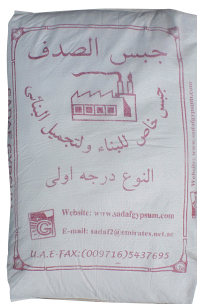 جبس الصدف
جبس خاص للبناء ولتجميل المباني
النوع درجه اولى
Website: www.sadafgypsum.com
E-mail: sadaf2@emirates.net.ae
U.A.E-FAX:(009716)5437695